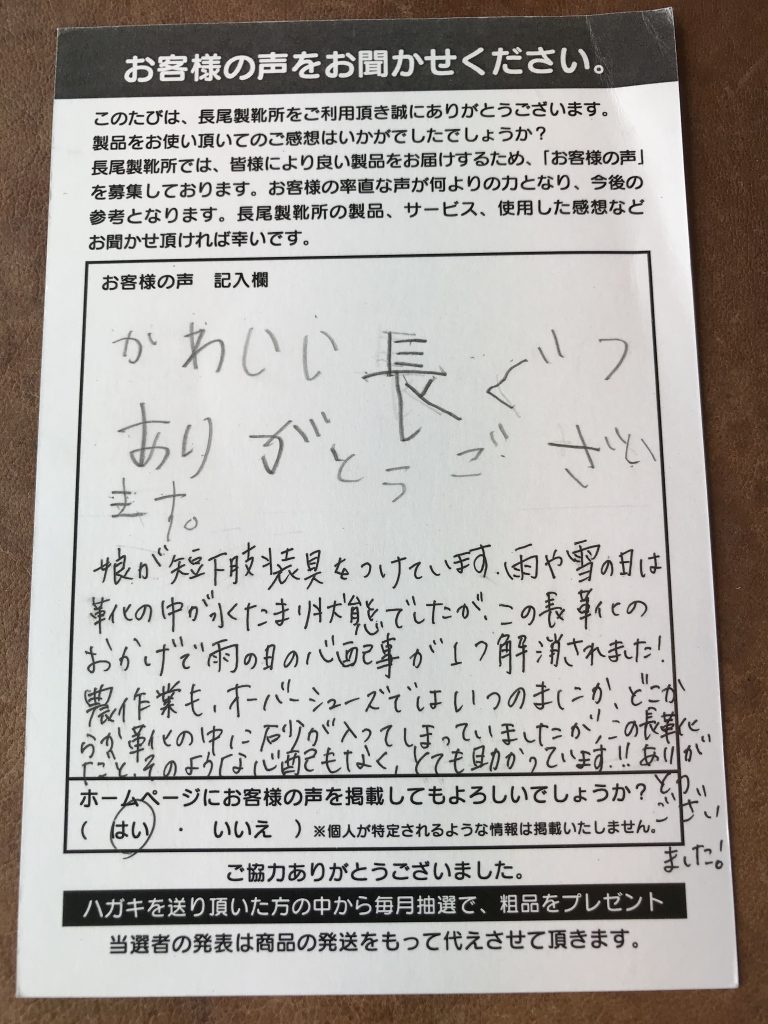 お客様の声をお聞かせください。
このたびは、長尾製靴所をご利用頂き誠にありがとうございます。
製品をお使い頂いてのご感想はいかがでしたでしょうか？
長尾製靴所では、皆様により良い製品をお届けするため、「お客様の声」
を募集しております。お客様の率直な声が何よりの力となり、今後の
参考となります。長尾製靴所の製品、サービス、使用した感想など
お聞かせ頂ければ幸いです。
お客様の声　記入欄
かわいい長ぐつ
ありがとうござい
ます。
娘が短下肢装具をつけています。雨や雪の日は
靴の中が水たまり状態でしたが、この長靴の
おかげで雨の日の心配事が1つ解消されました！
農作業も、オーバーシューズではいつのまにか、どこか
らか靴の中に砂が入ってしまっていましたが、この長靴
だと、そのような心配もなく、とても助かっています!! ありが
とう
ござい
ました！
ホームページにお客様の声を掲載してもよろしいでしょうか？
（　はい　・　いいえ　）※個人が特定されるような情報は掲載いたしません。
ご協力ありがとうございました。
ハガキを送り頂いた方の中から毎月抽選で、粗品をプレゼント
当選者の発表は商品の発送をもって代えさせて頂きます。